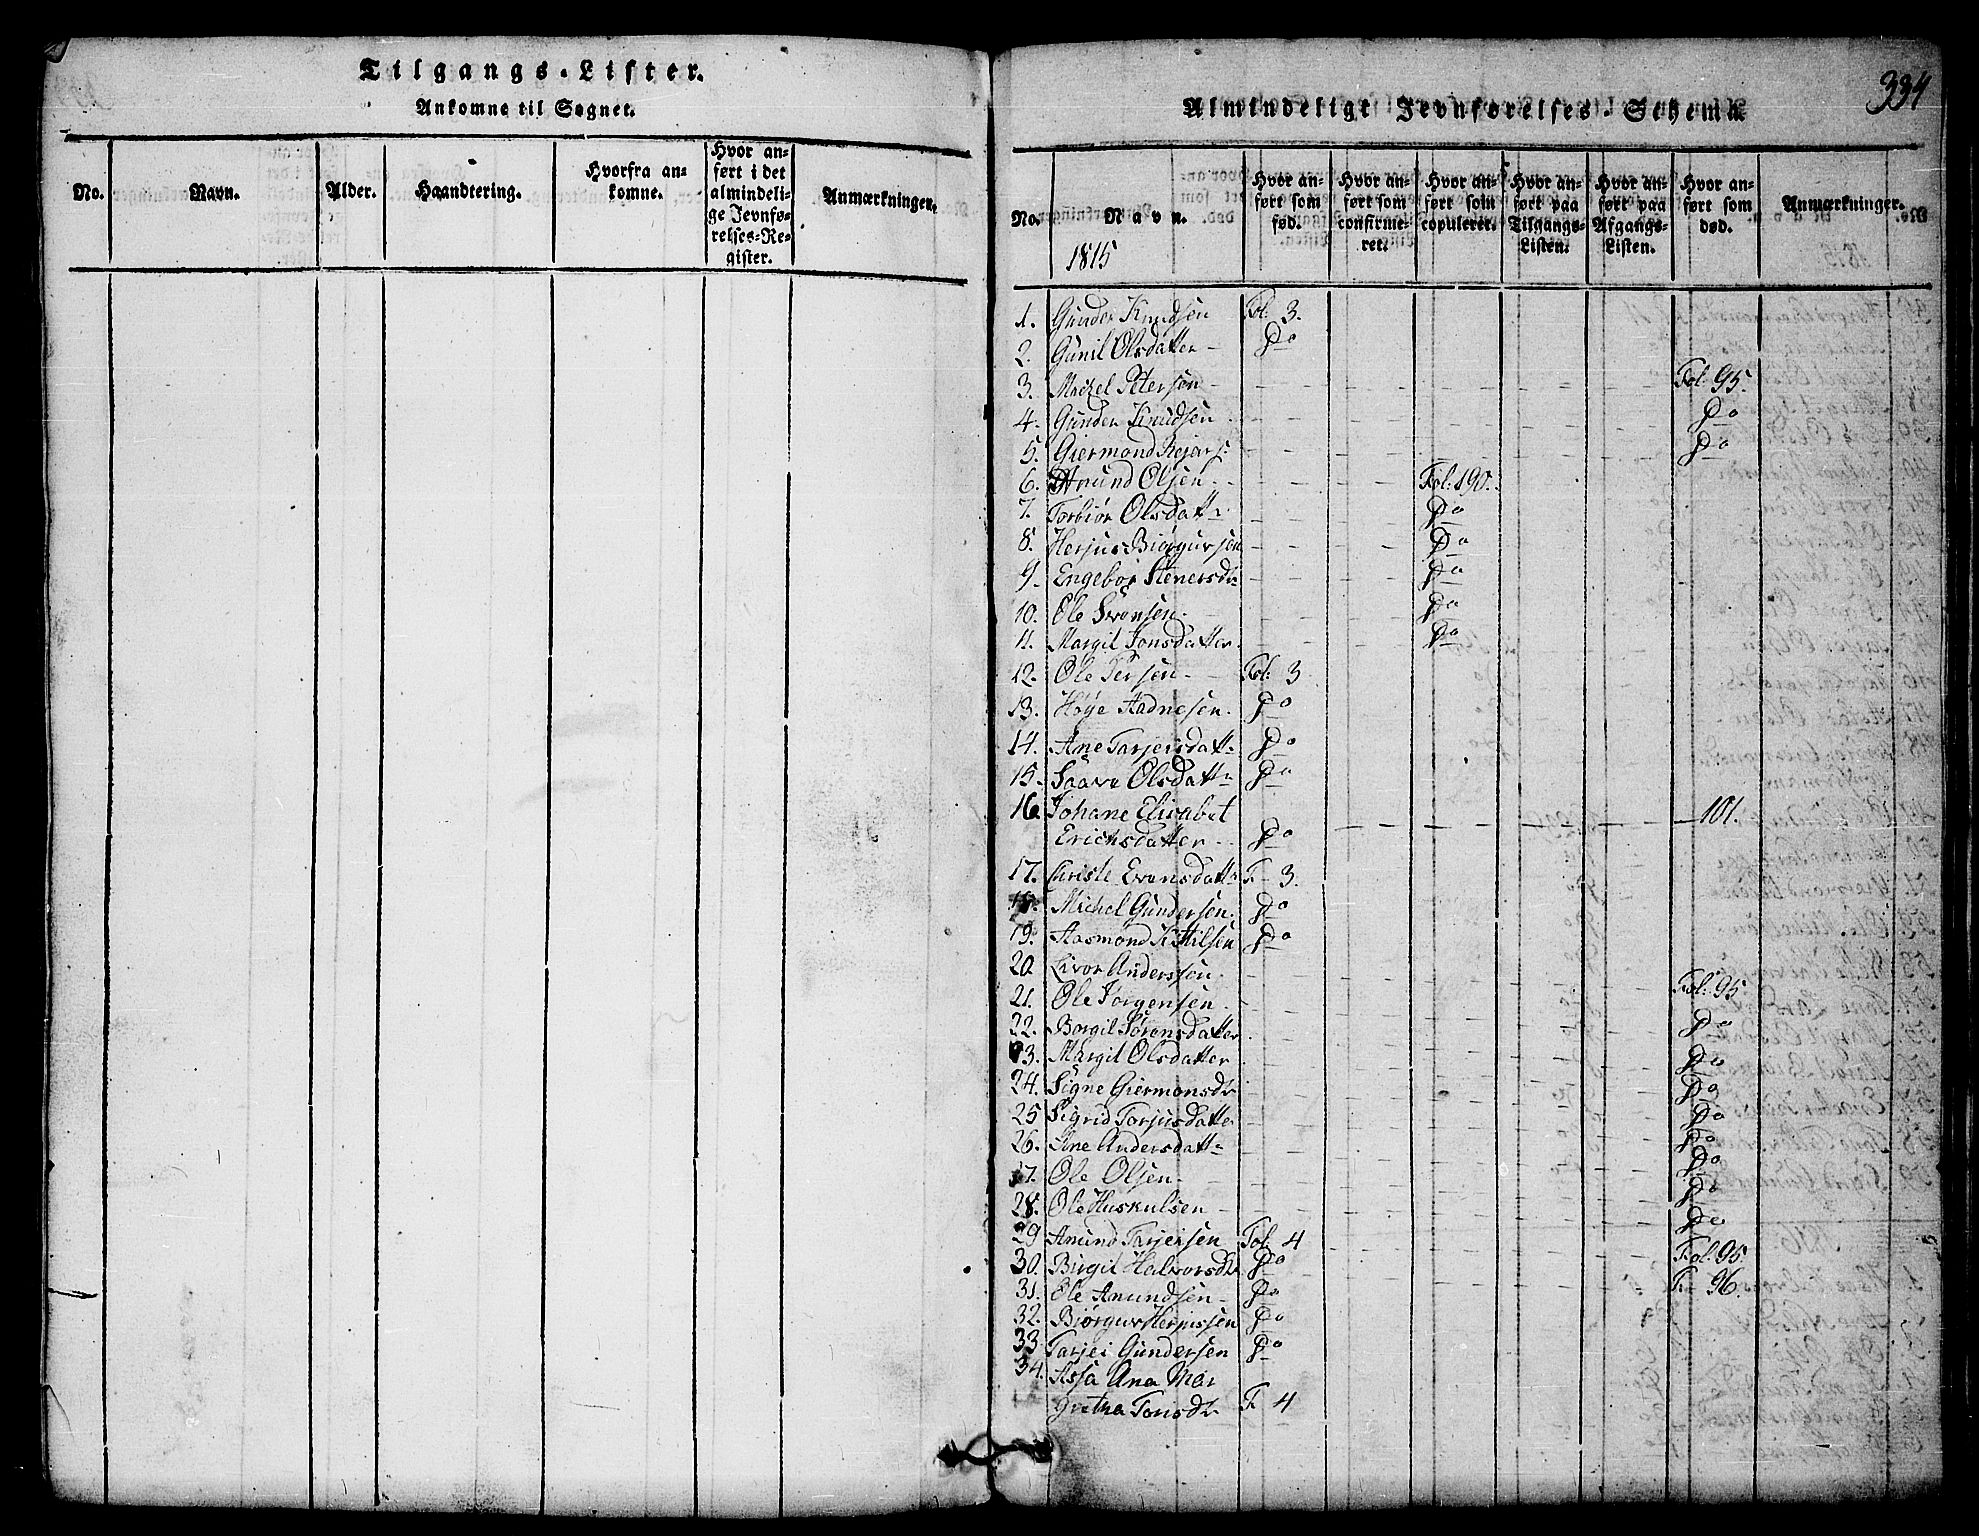 Tilgangs-Lister.
Ankomne til Sognet.
No. Navn. Alder. Haandtering. Hvorfra ankomne. Hvor anført i det almindelige Jevnførelses-Register. Anmærkninger.
334
Almindeligt Jevnførelses-Schema
No. Navn. Hvor anført som fød. Hvor anført som confirmeret. Hvor anført som copuleret. Hvor anført paa Tilgangs-Listen. Hvor anført paa Afgangs-Listen. Hvor anført som død. Anmærkninger.
1815
1. Gunder Knudsen Fol: 3.
2. Gunil Olsdatter Do
3. Mickel Petersen Fol: 95.
4. Gunder Knudsen Do
5. Giermond Rejers: Do
6. Anund Olsen Fol: 190.
7. Torbiør Olsdattr Do
8. Herjus Biørgursen Do
9. Engebor Stenersdr Do
10. Ole Svensen Do
11. Margit Jonsdatter Do
12. Ole Persen Fol: 3
13. Høye Aadnesen Do
14. Ane Tarjersdattr Do
15. Saave Olsdattr Do
16. Johane Elisabet
Erichsdatter Do 101.
17. Christe Evensdattr F 3.
18. Michel Gundersen Do
19. Aasmond Kittilsen Do
20. Livor Anderssen Fol: 95
21. Ole Jørgensen
22. Borgil Sørensdatter Do
23. Margit Olsdatter Do
24. Signe Giermonsdr Do
25 Sigrid Torjusdatter Do
26. Ane Andersdattr Do
27. Ole Olsen Do
28. Ole Huskulsen Do
29 Anund Tarjersen Fol: 4 Do
30. Birgit Halvorsdr Do Fol: 95.
31. Ole Anundsen Do F 96.
32. Biørgur Herjussen Do
33. Tarjei Gundersen Do
34. Asja Ana Mar
gretha Tonisdr F 4